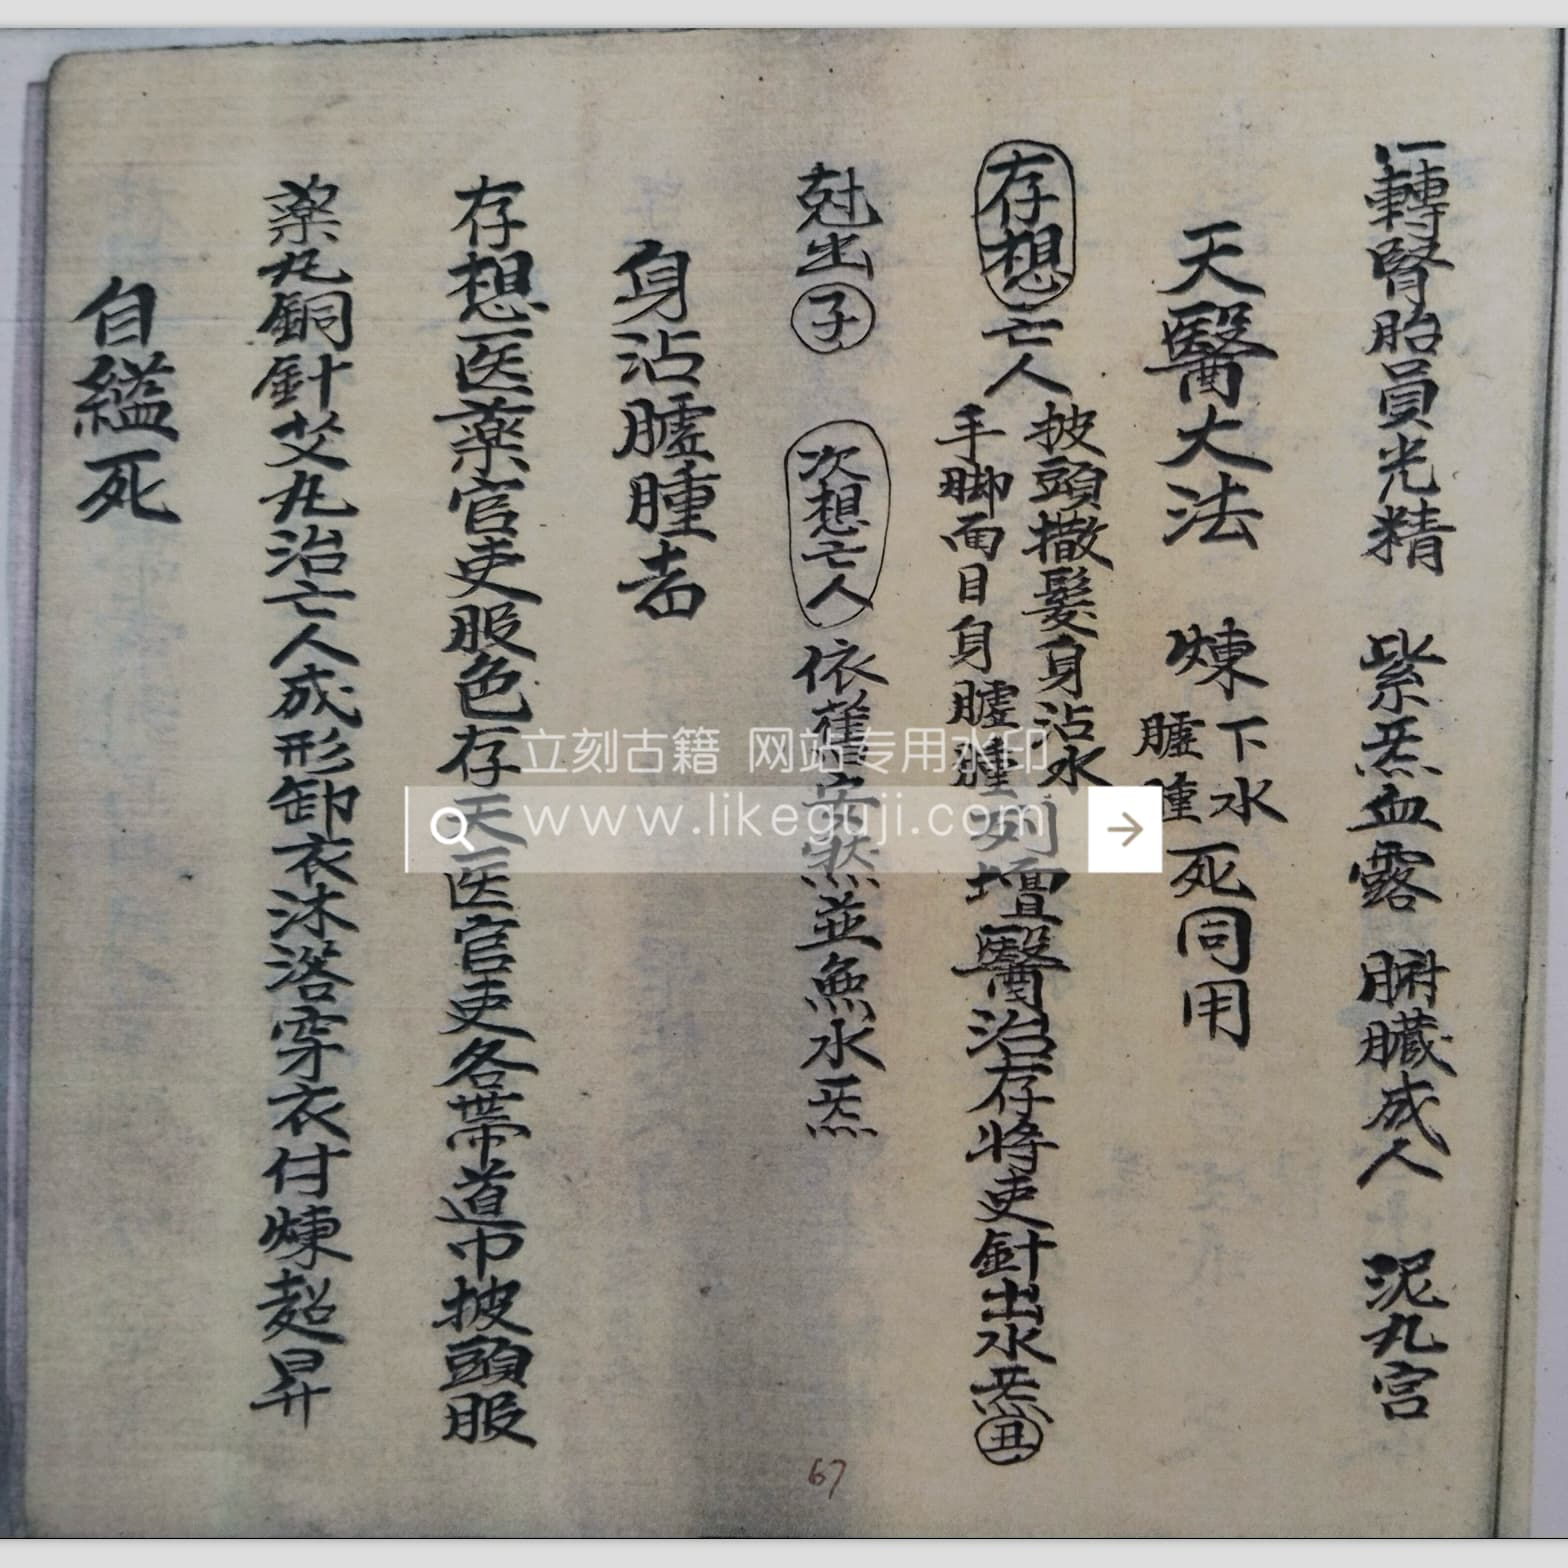 一轉腎胎員光精 紫炁血露 腑臟成人 泥丸宮
天醫大法 煉下水臚腫死同用
存想亡人披頭撒髮身沾水手脚面目身臚腫到壇醫治存將吏針出水炁丑
尅出子 次想亡人依舊 狀並魚水炁
身沾臚腫者
存想医薬官吏服色存天医官吏各帶道巾披頭服
薬丸銅針艾丸治亡人成形卸衣沐浴穿衣付煉超昇
自縊死
67
立刻古籍 网站专用水印
www.likeguji.com